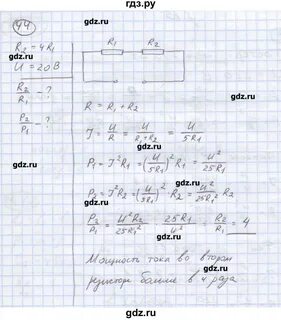 гдз.ру
44
R₂ = 4R₁
U = 20 В
R₂/R₁ - ?
P₂/P₁ - ?
R₁ R₂
R = R₁ + R₂
J = U/R = U/(R₁ + R₂) = U/5R₁
P₁ = J²R₁ = (U/5R₁)²R₁ = U²/25R₁
P₁ = J²R₂ = (U/3R₁)²R₂ = U²/25R₁² R₂
P₂/P₁ = U²R₂/25R₁² · 25R₁/U² = R₂/R₁ = 4
Мощность тока во втором
резисторе больше в 4 раза
gdz.ru